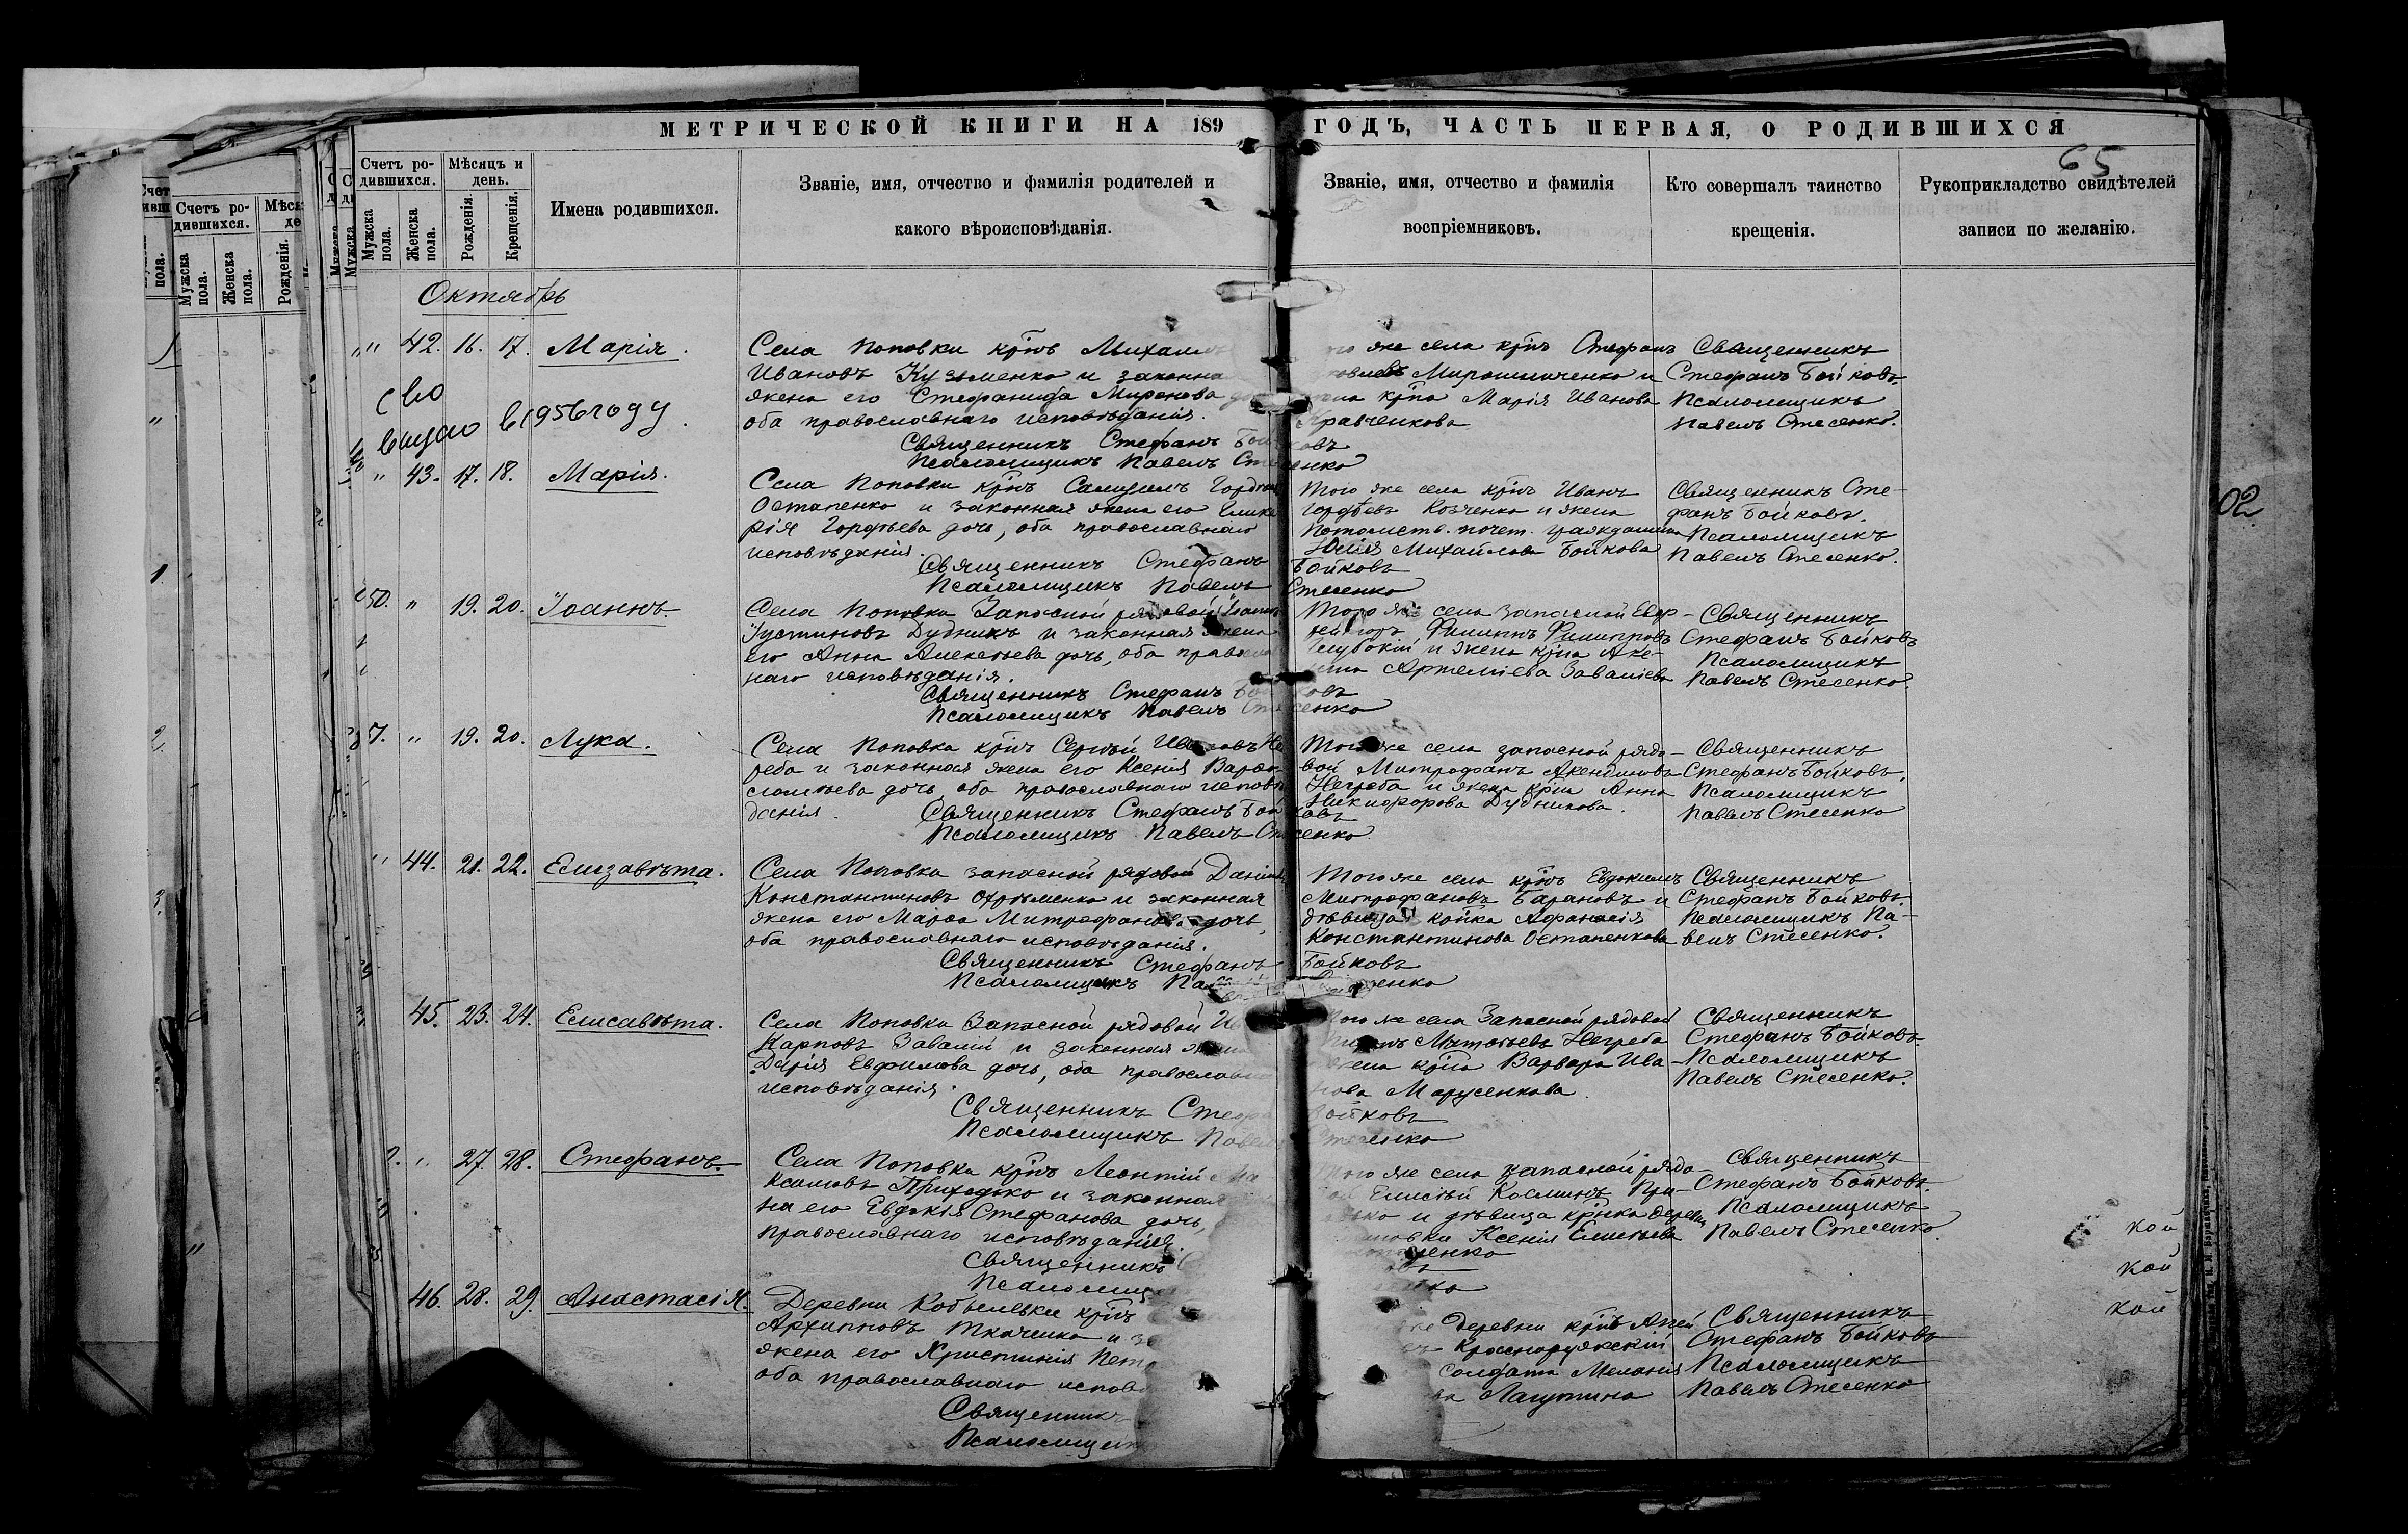 МЕТРИЧЕСКОЙ КНИГИ НА 189 ГОДЪ, ЧАСТЬ ПЕРВАЯ, О РОДИВШИХСЯ
65
Счетъ ро-
дившихся.
Мужска
пола.
Женска
пола.
Мѣсяцъ и
день.
Рожденія.
Крещенія.
Имена родившихся.
Званіе, имя, отчество и фамилія родителей и
какого вѣроисповѣданія.
Званіе, имя, отчество и фамилія
воспріемниковъ.
Кто совершалъ таинство
крещенія.
Рукоприкладство свидѣтелей
записи по желанію.
Счетъ ро-
дившихся.
Мужска
пола.
Женска
пола.
Рожденія.
Октябрь
" 42. 16. 17. Марія.
Села Поповки крнъ Михаилъ
Ивановъ Кузьменко и законна
жена его Стефанида Миронова
оба православнаго исповѣданія.
Священникъ Стефанъ Бойковъ
Псаломщикъ Павелъ Стесенко
же села крнъ Стефанъ
Мирошниченко и
крна Марія Иванова
Кравченкова
Священникъ
Стефанъ Бойковъ.
Псаломщикъ
Павелъ Стесенко.
в 1956 году
" 43. 17. 18. Марія.
Села Поповки крнъ Самуилъ
Остапенко и законная жена его Глике
рія Гордѣева дочь, оба православнаго
исповѣданія.
Священникъ Стефанъ Бойковъ
Псаломщикъ Павелъ Стесенко
Того же села крнъ Иванъ
Гордѣевъ Козченко и жена
Потомств. почет. гражданина
Юлія Михайлова Бойкова
Священникъ Сте-
фанъ Бойковъ.
Псаломщикъ
Павелъ Стесенко.
50. " 19. 20. Іоаннъ.
Села Поповка Запасной рядовой Іоаннъ
Іустиновъ Дудникъ и законная жена
его Анна Алексѣева дочь, оба правосла
наго исповѣданія.
Священникъ Стефанъ Бойковъ
Псаломщикъ Павелъ Стесенко
Того же села запасной Ефр-
рейторъ Филиппъ Филипповъ
Глубокій и жена крна Аке-
Артеміева Заваліева
Священникъ
Стефанъ Бойковъ
Псаломщикъ
Павелъ Стесенко.
" 19. 20. Лука.
Села Поповка крнъ Сергѣй Ивановъ Не
реба и законная жена его Ксенія Варѳо-
ломѣева дочь, оба православнаго исповѣ
данія.
Священникъ Стефанъ Бойковъ
Псаломщикъ Павелъ Стесенко.
Того же села запасной рядо-
вой Митрофанъ Акендиновъ
Негреба и жена крна Анна
Никифорова Дудникова.
Священникъ
Стефанъ Бойковъ.
Псаломщикъ
Павелъ Стесенко
" 44. 21. 22. Елизавѣта.
Села Поповка запасной рядовой Даніилъ
Константиновъ Охрѣменко и законная
жена его Марѳа Митрофанова дочь,
оба православнаго исповѣданія.
Священникъ Стефанъ Бойковъ
Псаломщикъ
Того же села крнъ Евдокимъ
Митрофановъ Барановъ и
дѣвица Афанасія
Константинова Остапенкова
Священникъ
Стефанъ Бойковъ.
Псаломщикъ Па-
велъ Стесенко.
45. 23. 24. Елисавѣта.
Села Поповки Запасной рядовой
Карповъ Завалій и законная жена
Дарія Евфимова дочь, оба православна
исповѣданія.
Священникъ Стефа Бойковъ
Псаломщикъ Павелъ Стесенко
Того же села Запасной рядовой
Матвѣевъ Негреба
жена крна Варвара Ива-
нова Марусенкова.
Священникъ
Стефанъ Бойковъ.
Псаломщикъ
Павелъ Стесенко.
" 27. 28. Стефанъ.
Села Поповка крнъ Леонтій Ма
ксимовъ Приходько и законная
на его Евдокія Стефанова дочь,
православнаго исповѣданія.
Священникъ
Псаломщ
Того же села запасной рядо-
Елисѣй Косминъ При-
и дѣвица крнка Деревни
Ксенія Елисѣева
Священникъ
Стефанъ Бойковъ.
Псаломщикъ
Павелъ Стесенко.
46. 28. 29. Анастасія.
Деревни Кобылевки крнъ
Архиповъ Ткаченко и за
жена его Христинія Петр
оба православнаго исповѣ
Священникъ
Псаломщик
Деревни крнъ
Краснояружскій
Солдата Меланія
Лагутина
Священникъ
Стефанъ Бойковъ
Псаломщикъ
Павелъ Стесенко
кой
кой
кой
02